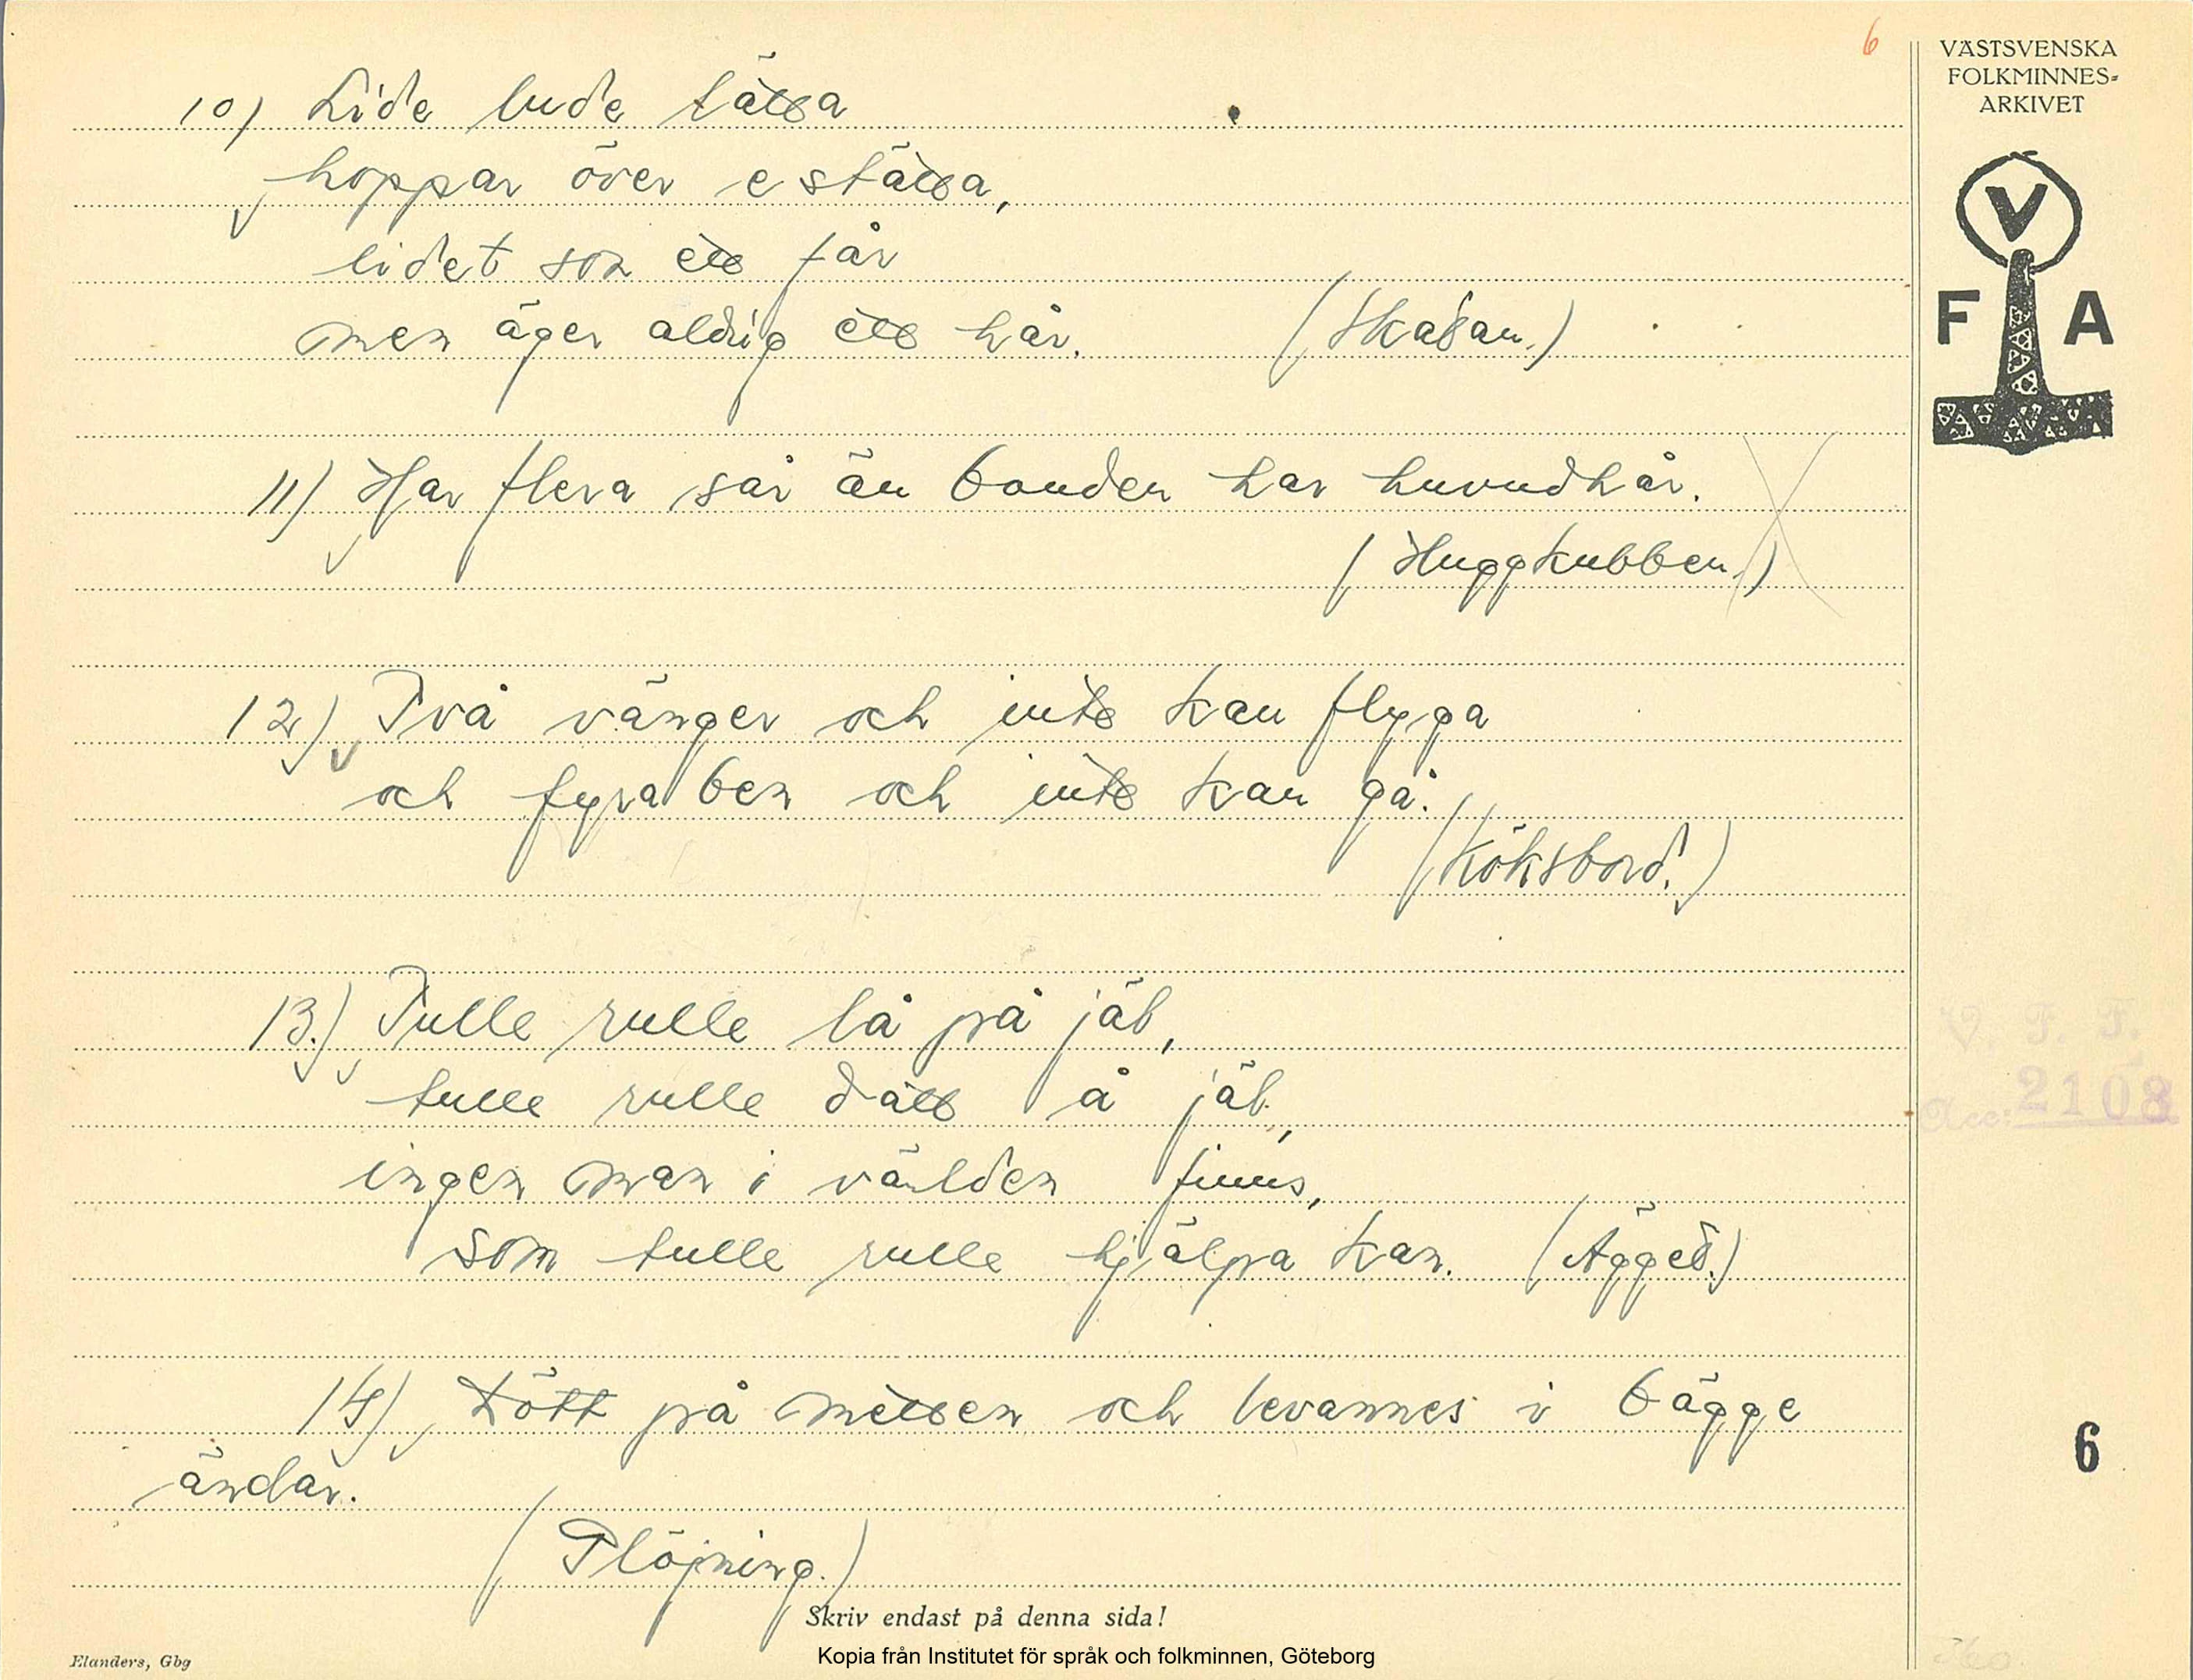 6
VÄSTSVENSKA
FOLKMINNES-
ARKIVET
V
F A
10) Lide lude lätta
hoppar över e stätta,
lidet son ett får
men äger aldrig ett hår. (Skatan.)
11) Har flera sår än bonden har huvudhår.
(Huggkubben.)
12) Två vänger och inte kan flyga
och fyra ben och inte kan gå.
(Köksbord.)
13.) Tulle rulle lå på jäl,
tulle rulle datt å jäl,
ingen man i världen finns,
som tulle rulle hjälpa kan. (Ägget.)
14) Dött på metten och levannes i bägge
ändar.
(Plöjning.)
V. F. F.
Acc: 2108
6
Skriv endast på denna sida!
Elanders, Gbg
Kopia från Institutet för språk och folkminnen, Göteborg